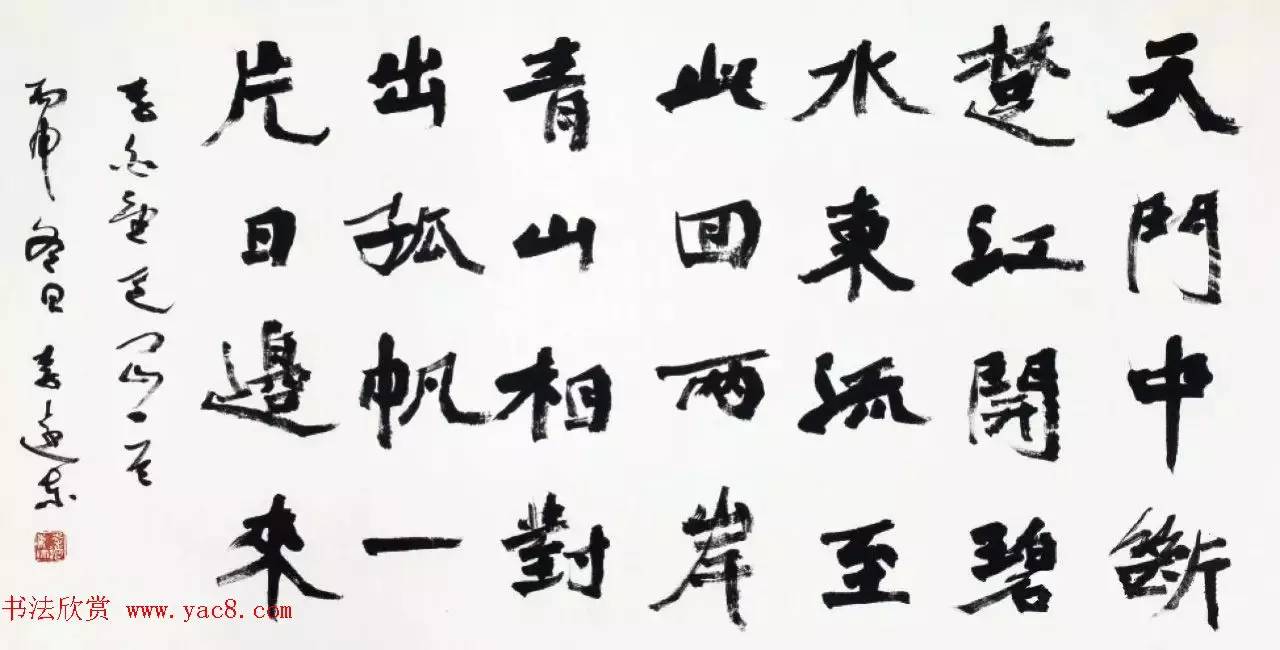 天門中斷
楚江開碧
水東流至
此回兩岸
青山相對
出孤帆一
片日邊來
李白望天門山一首
丙申冬日 李遠東
书法欣赏 www.yac8.com